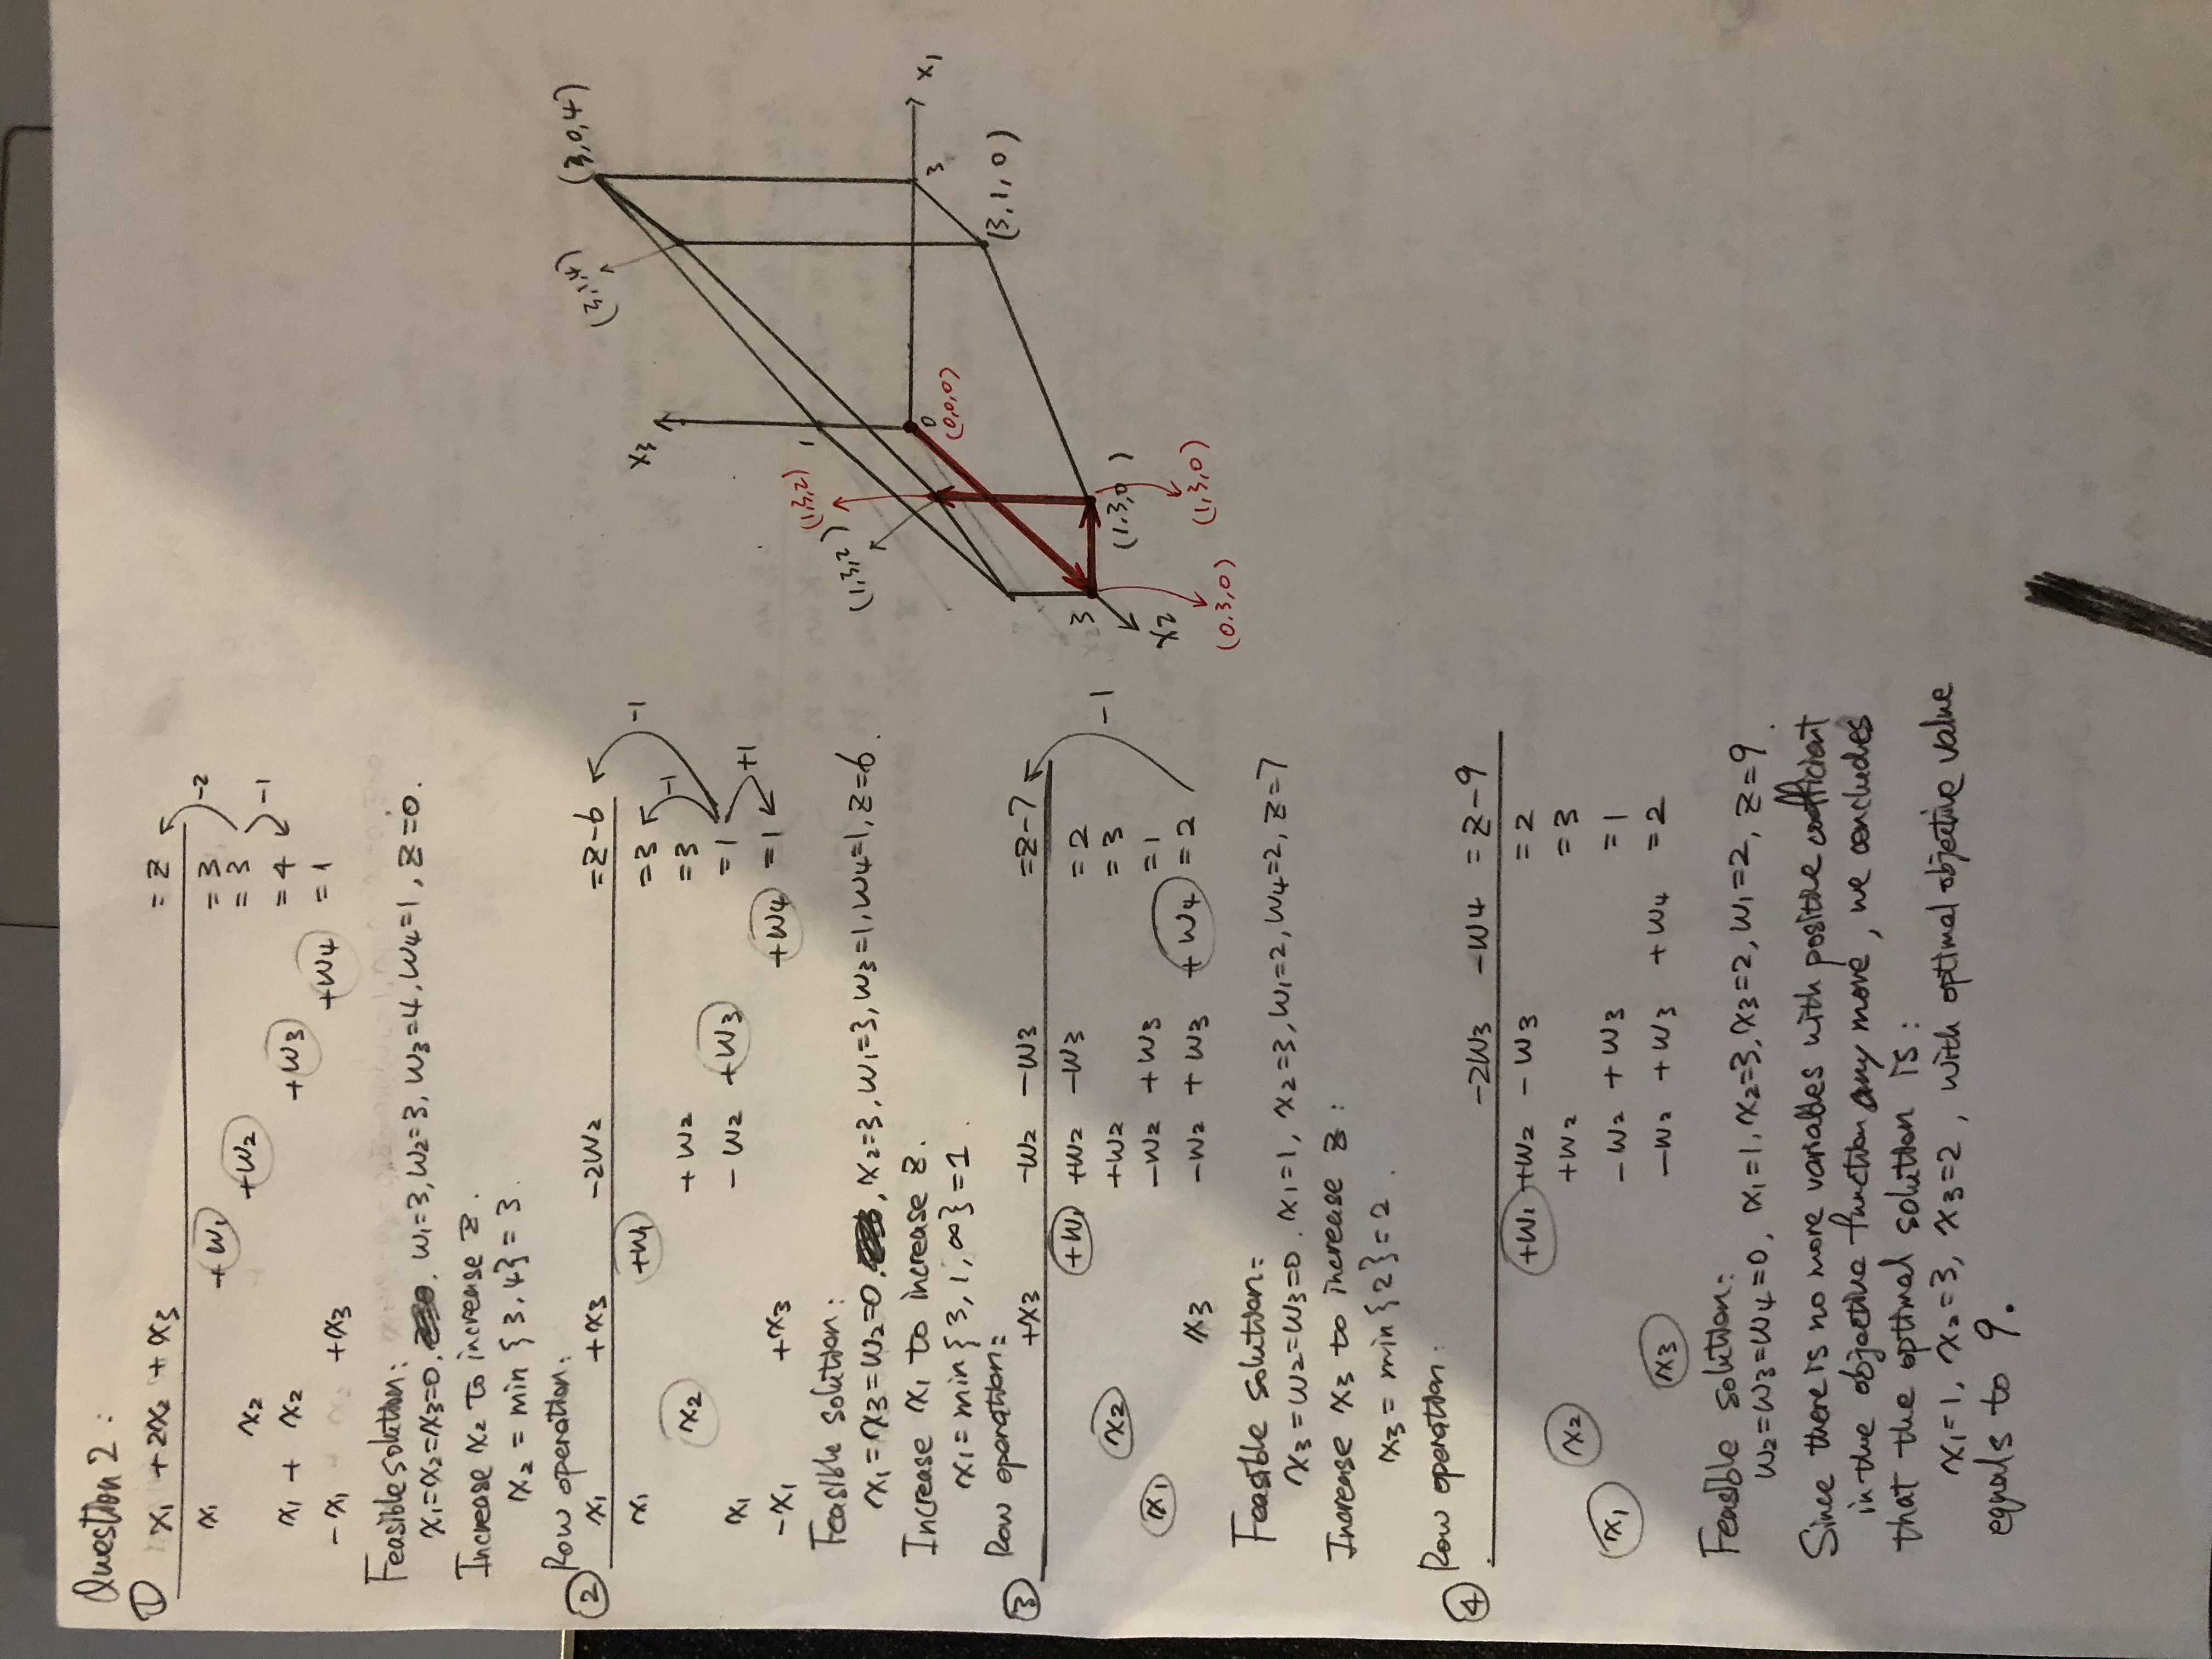 Question 2 :
① x₁ + 2x₂ + x₃ = z
x₁ + w₁ = 3
x₂ + w₂ = 3
x₁ + x₂ + w₃ = 4
- x₁ + x₃ + w₄ = 1
-2
-1
Feasible solution:
x₁=x₂=x₃=0, w₁=3, w₂=3, w₃=4, w₄=1, z=0.
Increase x₂ to increase z.
x₂ = min {3,4} = 3.
Row operation:
② x₁ + x₃ - 2w₂ = z-6
x₁ + w₁ = 3
x₂ + w₂ = 3
x₁ - w₂ + w₃ = 1
- x₁ + x₃ + w₄ = 1
-1
-1
+1
Feasible solution:
x₁=x₃=w₂=0, x₂=3, w₁=3, w₃=1, w₄=1, z=6.
Increase x₁ to increase z.
x₁ = min {3,1,∞} = 1.
Row operation:
③ + x₃ - w₂ - w₃ = z-7
+ w₁ + w₂ - w₃ = 2
x₂ + w₂ = 3
x₁ - w₂ + w₃ = 1
x₃ - w₂ + w₃ + w₄ = 2
-1
Feasible solution:
x₃=w₂=w₃=0. x₁=1, x₂=3, w₁=2, w₄=2, z=7
Increase x₃ to increase z:
x₃ = min {2} = 2.
Row operation:
④ -2w₃ - w₄ = z-9
+ w₁ + w₂ - w₃ = 2
x₂ + w₂ = 3
x₁ - w₂ + w₃ = 1
x₃ - w₂ + w₃ + w₄ = 2
Feasible solution:
w₂=w₃=w₄=0, x₁=1, x₂=3, x₃=2, w₁=2, z=9.
Since there is no more variables with positive coefficient
in the objective function any more, we concludes
that the optimal solution is:
x₁=1, x₂=3, x₃=2, with optimal objective value
equals to 9.
(3,1,4)
(3,0,4)
x₃
1
(1,3,2)
(1,3,2)
0
(0,0,0)
3
x₁
(3,1,0)
3
(1,3,0)
x₂
(0,3,0)
(1,3,0)